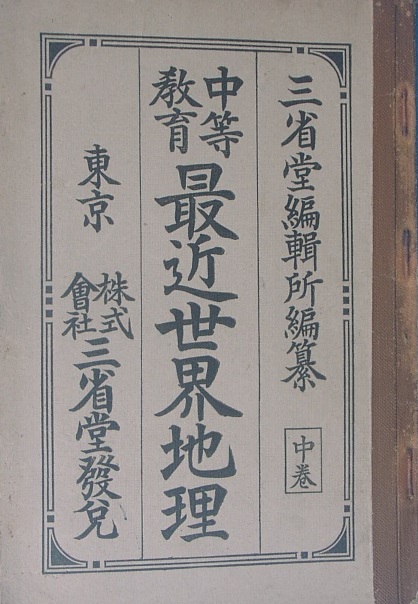 三省堂編輯所編纂
中卷
中等
教育
最近世界地理
東京
株式
會社
三省堂發兌